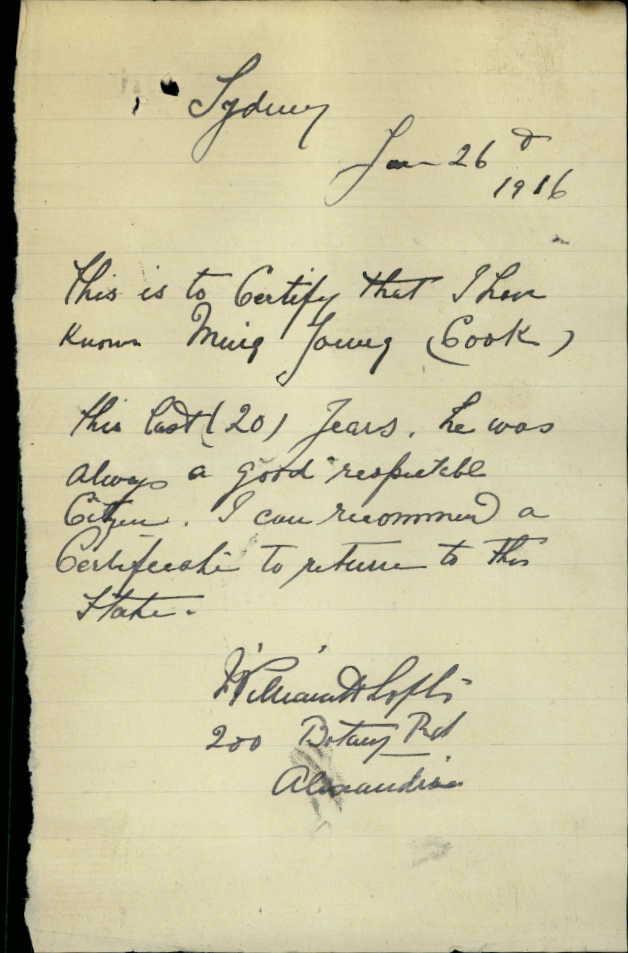 Sydney
Jan 26 d
1916
This is to Certify that I have
known Ming Young (Cook)
this last (20) years. he was
always a good respectibl
Citizen. I can recommend a
Certificate to return to this
State.
William H Lofts
200 Botany Rd
Alexandria